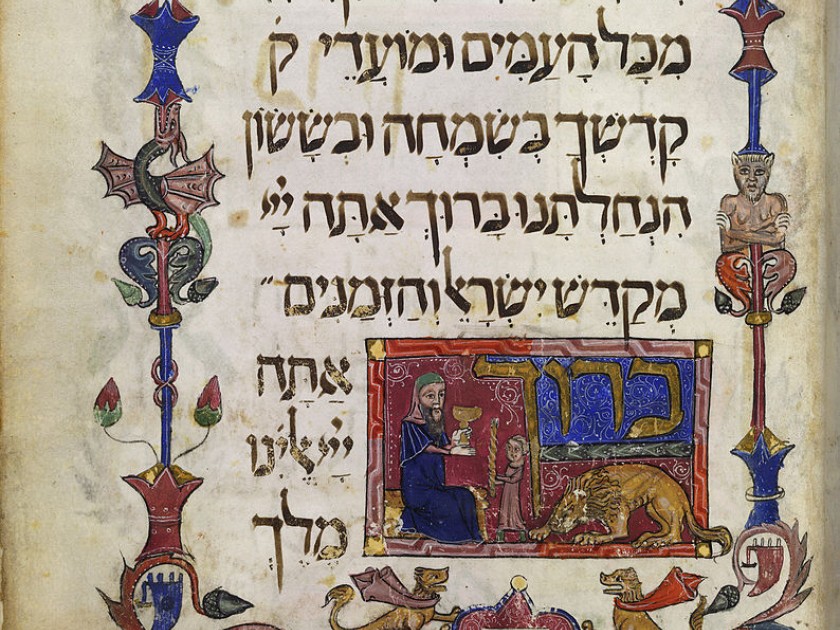 מִכָּל הָעַמִּים וּמוֹעֲדֵי ק
קָדְשְׁךָ בְּשִׂמְחָה וּבְשָׂשׂוֹן
הִנְחַלְתָּנוּ בָּרוּךְ אַתָּה יְיָ
מְקַדֵּשׁ יִשְׂרָאֵל וְהַזְּמַנִּים״
ברוך
אַתָּה
יְיָ אֱלֹהֵינוּ
מֶלֶךְ